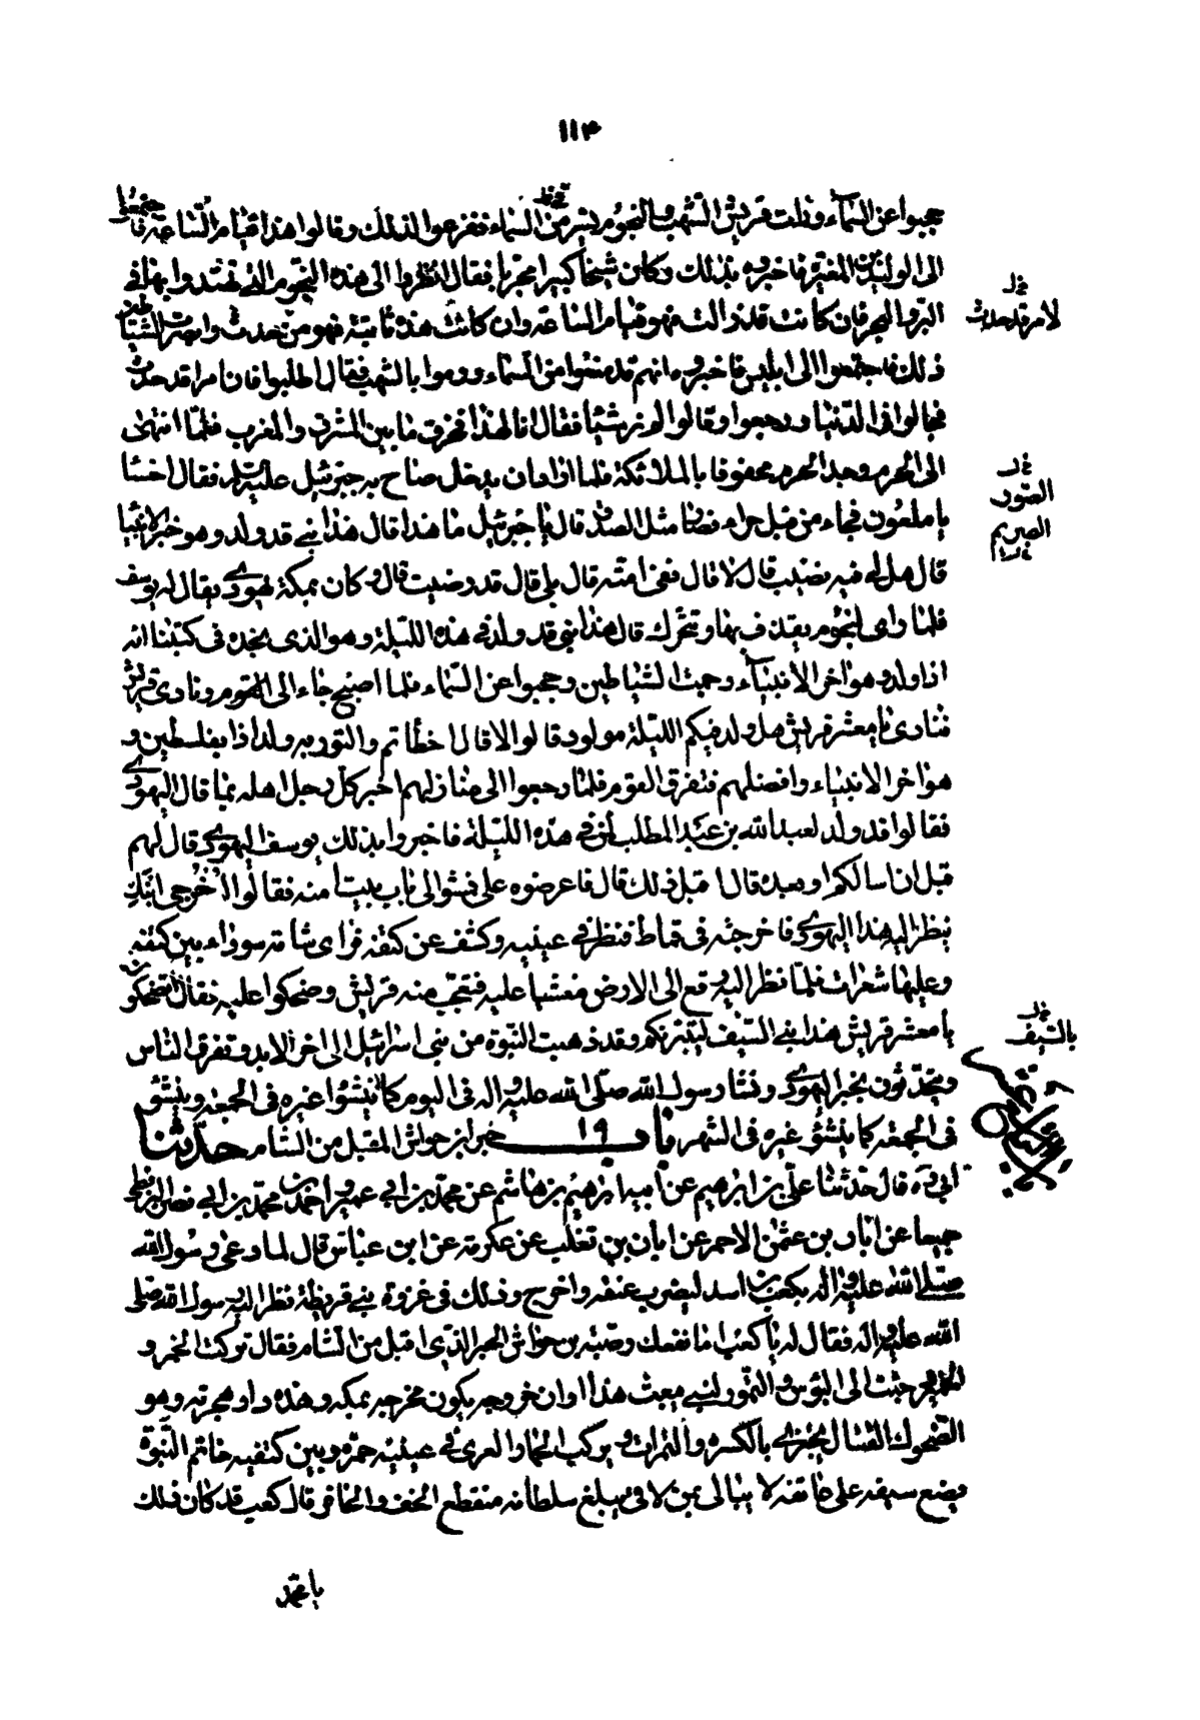 ١١۴
حجبوا عن السماء ورات قريش الشهب والنجوم يسير من السماء ففزعوا لذلك وقالوا هذا قيام الساعة فاجتمعوا
الى الوليد بن المغيرة فاخبروه بذلك وكان شيخا كبيرا مجربا فقال انظروا الى هذه النجوم التى تهتدوا بها فى
البر والبحر فان كانت قد زالت فهو قيام الساعة وان كانت هذه ثابتة فهو من حدث وابصرت الشياطين
ذلك فاجتمعوا الى ابليس فاخبروه انهم قد منعوا من السماء ورموا بالشهب فقال اطلبوا فان امرا قد حدث
فجالوا فى الدنيا ورجعوا وقالوا لم نر شيئا فقال انا لهذا فخرق ما بين المشرق والمغرب فلما انتهى
الى الحرم وجد الحرم محفوفا بالملائكة فلما اراد ان يدخل صاح به جبرئيل عليه السلام فقال اخسا
يا ملعون فجاء من قبل حراء فصار مثل الصر قال يا جبرئيل ما هذا قال هذا نبى قد ولد وهو خير الانبياء
قال هل لى فيه نصيب قال لا قال ففى امته قال بلى قال قد رضيت قال وكان بمكة يهودى يقال له يوسف
فلما راى النجوم يقذف بها وتتحرك قال هذا نبى قد ولد فى هذه الليلة وهو الذى نجده فى كتبنا انه
اذا ولد وهو اخر الانبياء رجمت الشياطين وحجبوا عن السماء فلما اصبح جاء الى القوم ونادى قريش
فنادى يا معشر قريش هل ولد فيكم الليلة مولود قالوا لا قال اخطاتم والتورية ولد اذا بفلسطين و
هو اخر الانبياء وافضلهم فتفرق القوم فلما رجعوا الى منازلهم اخبر كل رجل اهله بما قال اليهودى
فقالوا قد ولد لعبد الله بن عبد المطلب ابن فى هذه الليلة فاخبروا بذلك يوسف اليهودى قال لهم
قبل ان اسالكم او بعده قالوا قبل ذلك قال فاعرضوه على فمشوا الى باب بيت امنه فقالوا اخرجى ابنك
ينظر اليه هذا اليهودى فاخرجته فى قماط فنظر فى عينيه وكشف عن كتفه فراى شامة سوداء بين كتفيه
وعليها شعرات فلما نظر اليه وقع الى الارض مغشيا عليه فتعجب منه قريش وضحكوا عليه فقال اتضحكون
يا معشر قريش هذا نبى السيف ليتبرنكم وقد ذهبت النبوة من بنى اسرائيل الى اخر الابد وتفرق الناس
ويتحدثون بخبر اليهودى ونشا رسول الله صلى الله عليه واله فى اليوم كما ينشؤا غيره فى الجمعة وينشؤ
فى الجمعة كما ينشؤ غيره فى الشهر باب ١٩ خبر ابن حواش المقبل من الشام حدثنا
ابى ره قال حدثنا على بن ابراهيم عن ابيه ابراهيم بن هاشم عن محمد بن ابى عمير واحمد بن محمد بن ابى نصر البزنطى
جميعا عن ابان بن عثمن الاحمر عن ابان بن تغلب عن عكرمة عن ابن عباس قال لما دعى رسول الله
صلى الله عليه واله بكعب بن اسد ليضرب عنقه واخرج وذلك فى غزوة بنى قريظة نظر اليه رسول الله صلى
الله عليه واله فقال له يا كعب اما نفعك وصية بن حواش الحبر الذى اقبل من الشام فقال تركت الخمر و
الخمير وجئت الى البؤس والتمور لنبى يبعث هذا اوان خروجه يكون مخرجه بمكه وهذه دار هجرته وهو
الضحوك القتال يجتزى بالكسرة والتمرات ويركب الحمار العرى فى عينيه حمرة وبين كتفيه خاتم النبوة
يضع سيفه على عاتقه لا يبالى بمن لاقى يبلغ سلطانه منقطع الخف والحافر قال كعب قد كان ذلك
يا محمد
لامر قد حدث
بالسيف